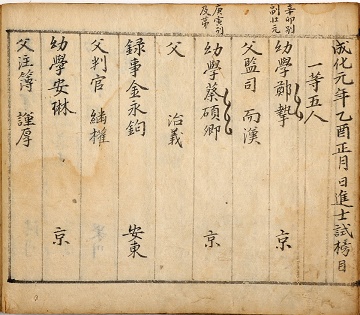 成化元年乙酉正月 日進士試榜目
一等五人
辛卯別
副壯元
幼學鄭摯 京
父監司 而漢
庚寅別
及第
幼學蔡碩卿 京
父 治義
錄事金永鈞 安東
父判官 繡權
幼學安琳 京
父注簿 謹厚